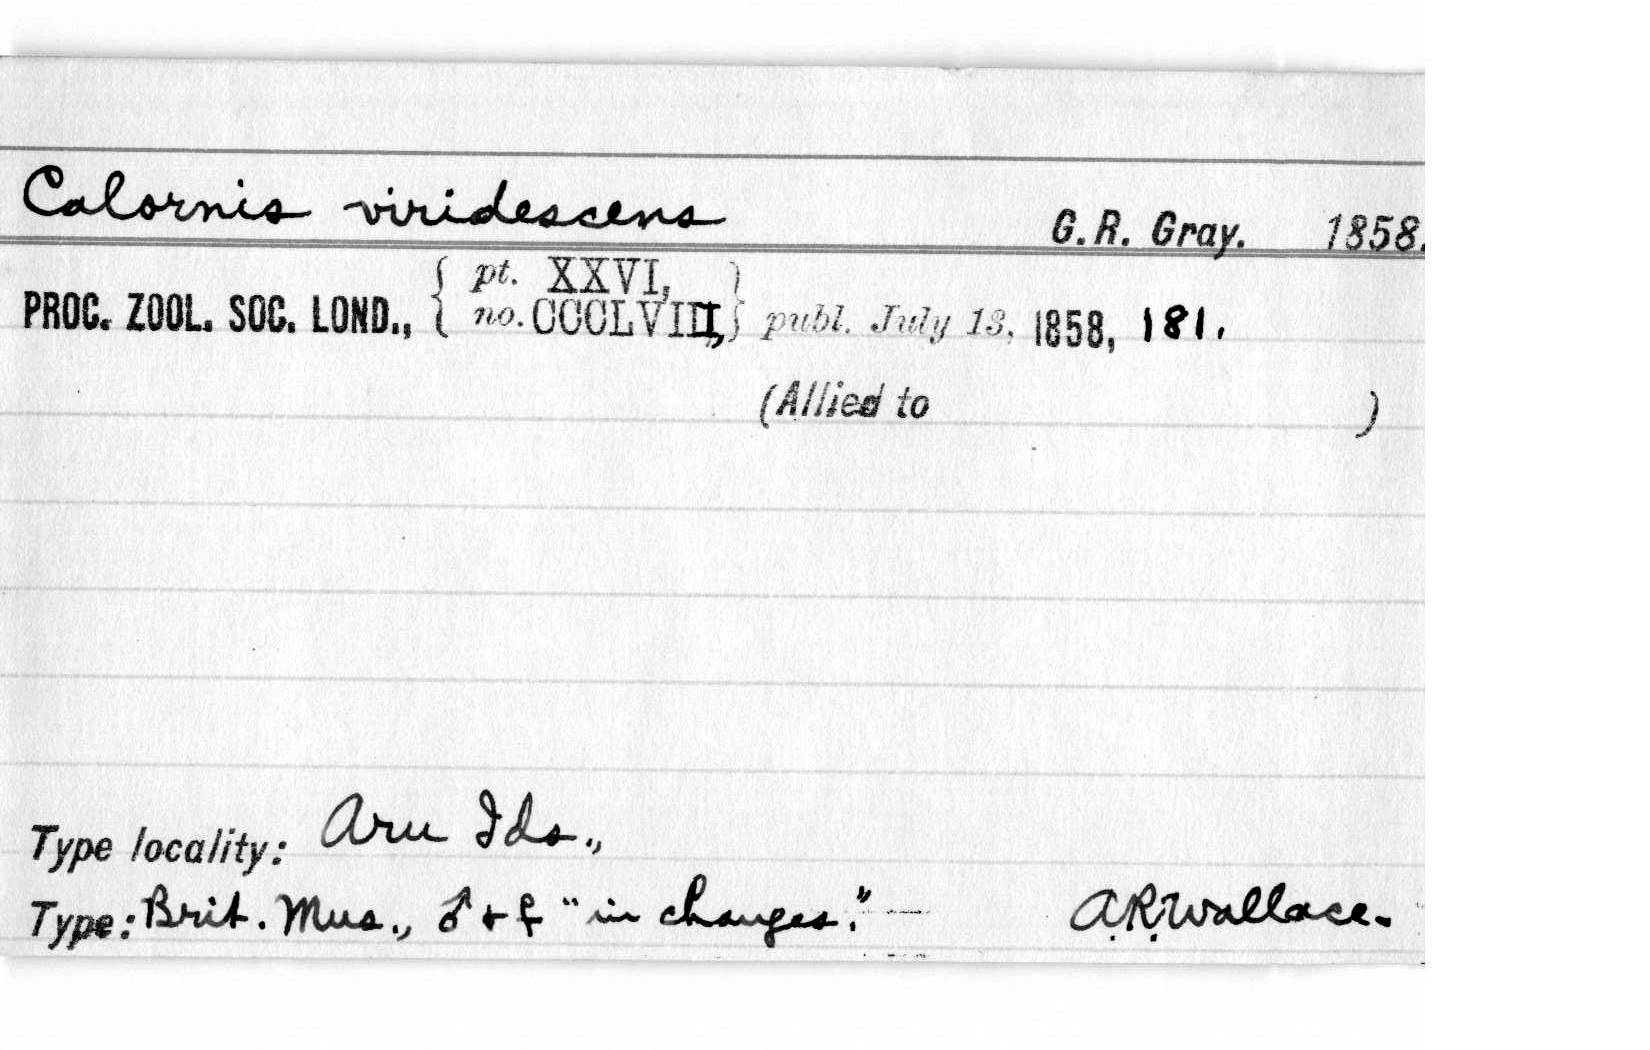 Calornis viridescens G.R. Gray. 1858.
PROC. ZOOL. SOC. LOND., { pt. XXVI, no. CCCLVIII, } publ. July 13, 1858, 181.
(Allied to )
Type locality: Aru Ids.,
Type: Brit. Mus., ♂ + ♀ "in changes." A.R. Wallace.